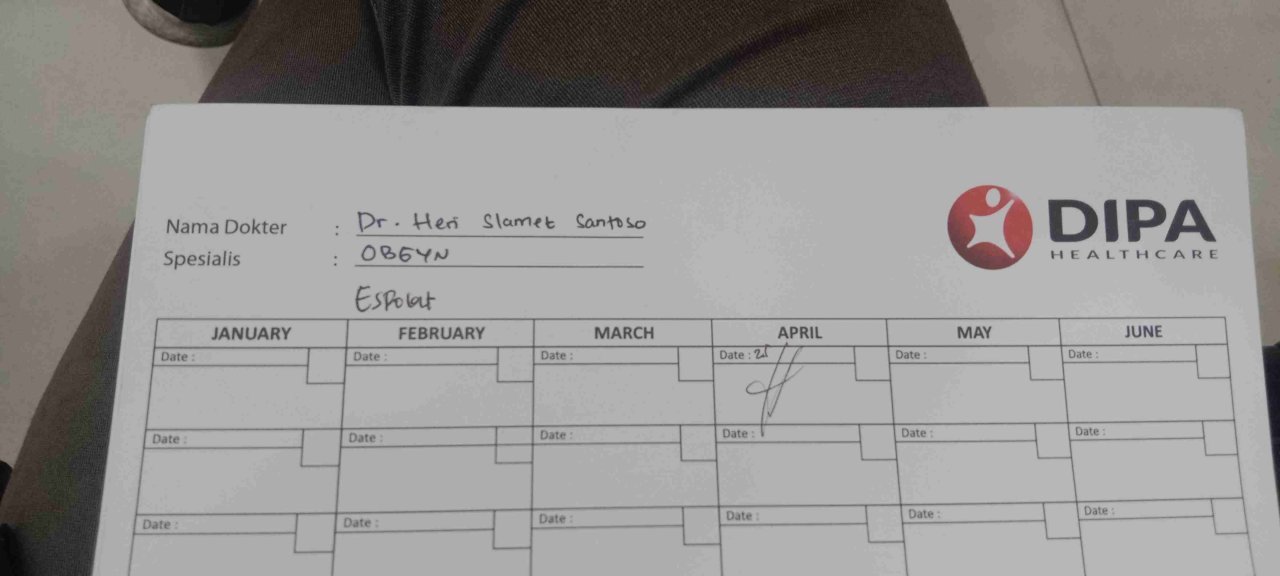 Nama Dokter : Dr. Heri Slamet Santoso
Spesialis : OBGYN
DIPA
HEALTHCARE
JANUARY FEBRUARY MARCH APRIL MAY JUNE
Date : Date : Date : Date : Date : Date :
Date : Date : Date : Date : Date : Date :
Date : Date : Date : Date : Date : Date :